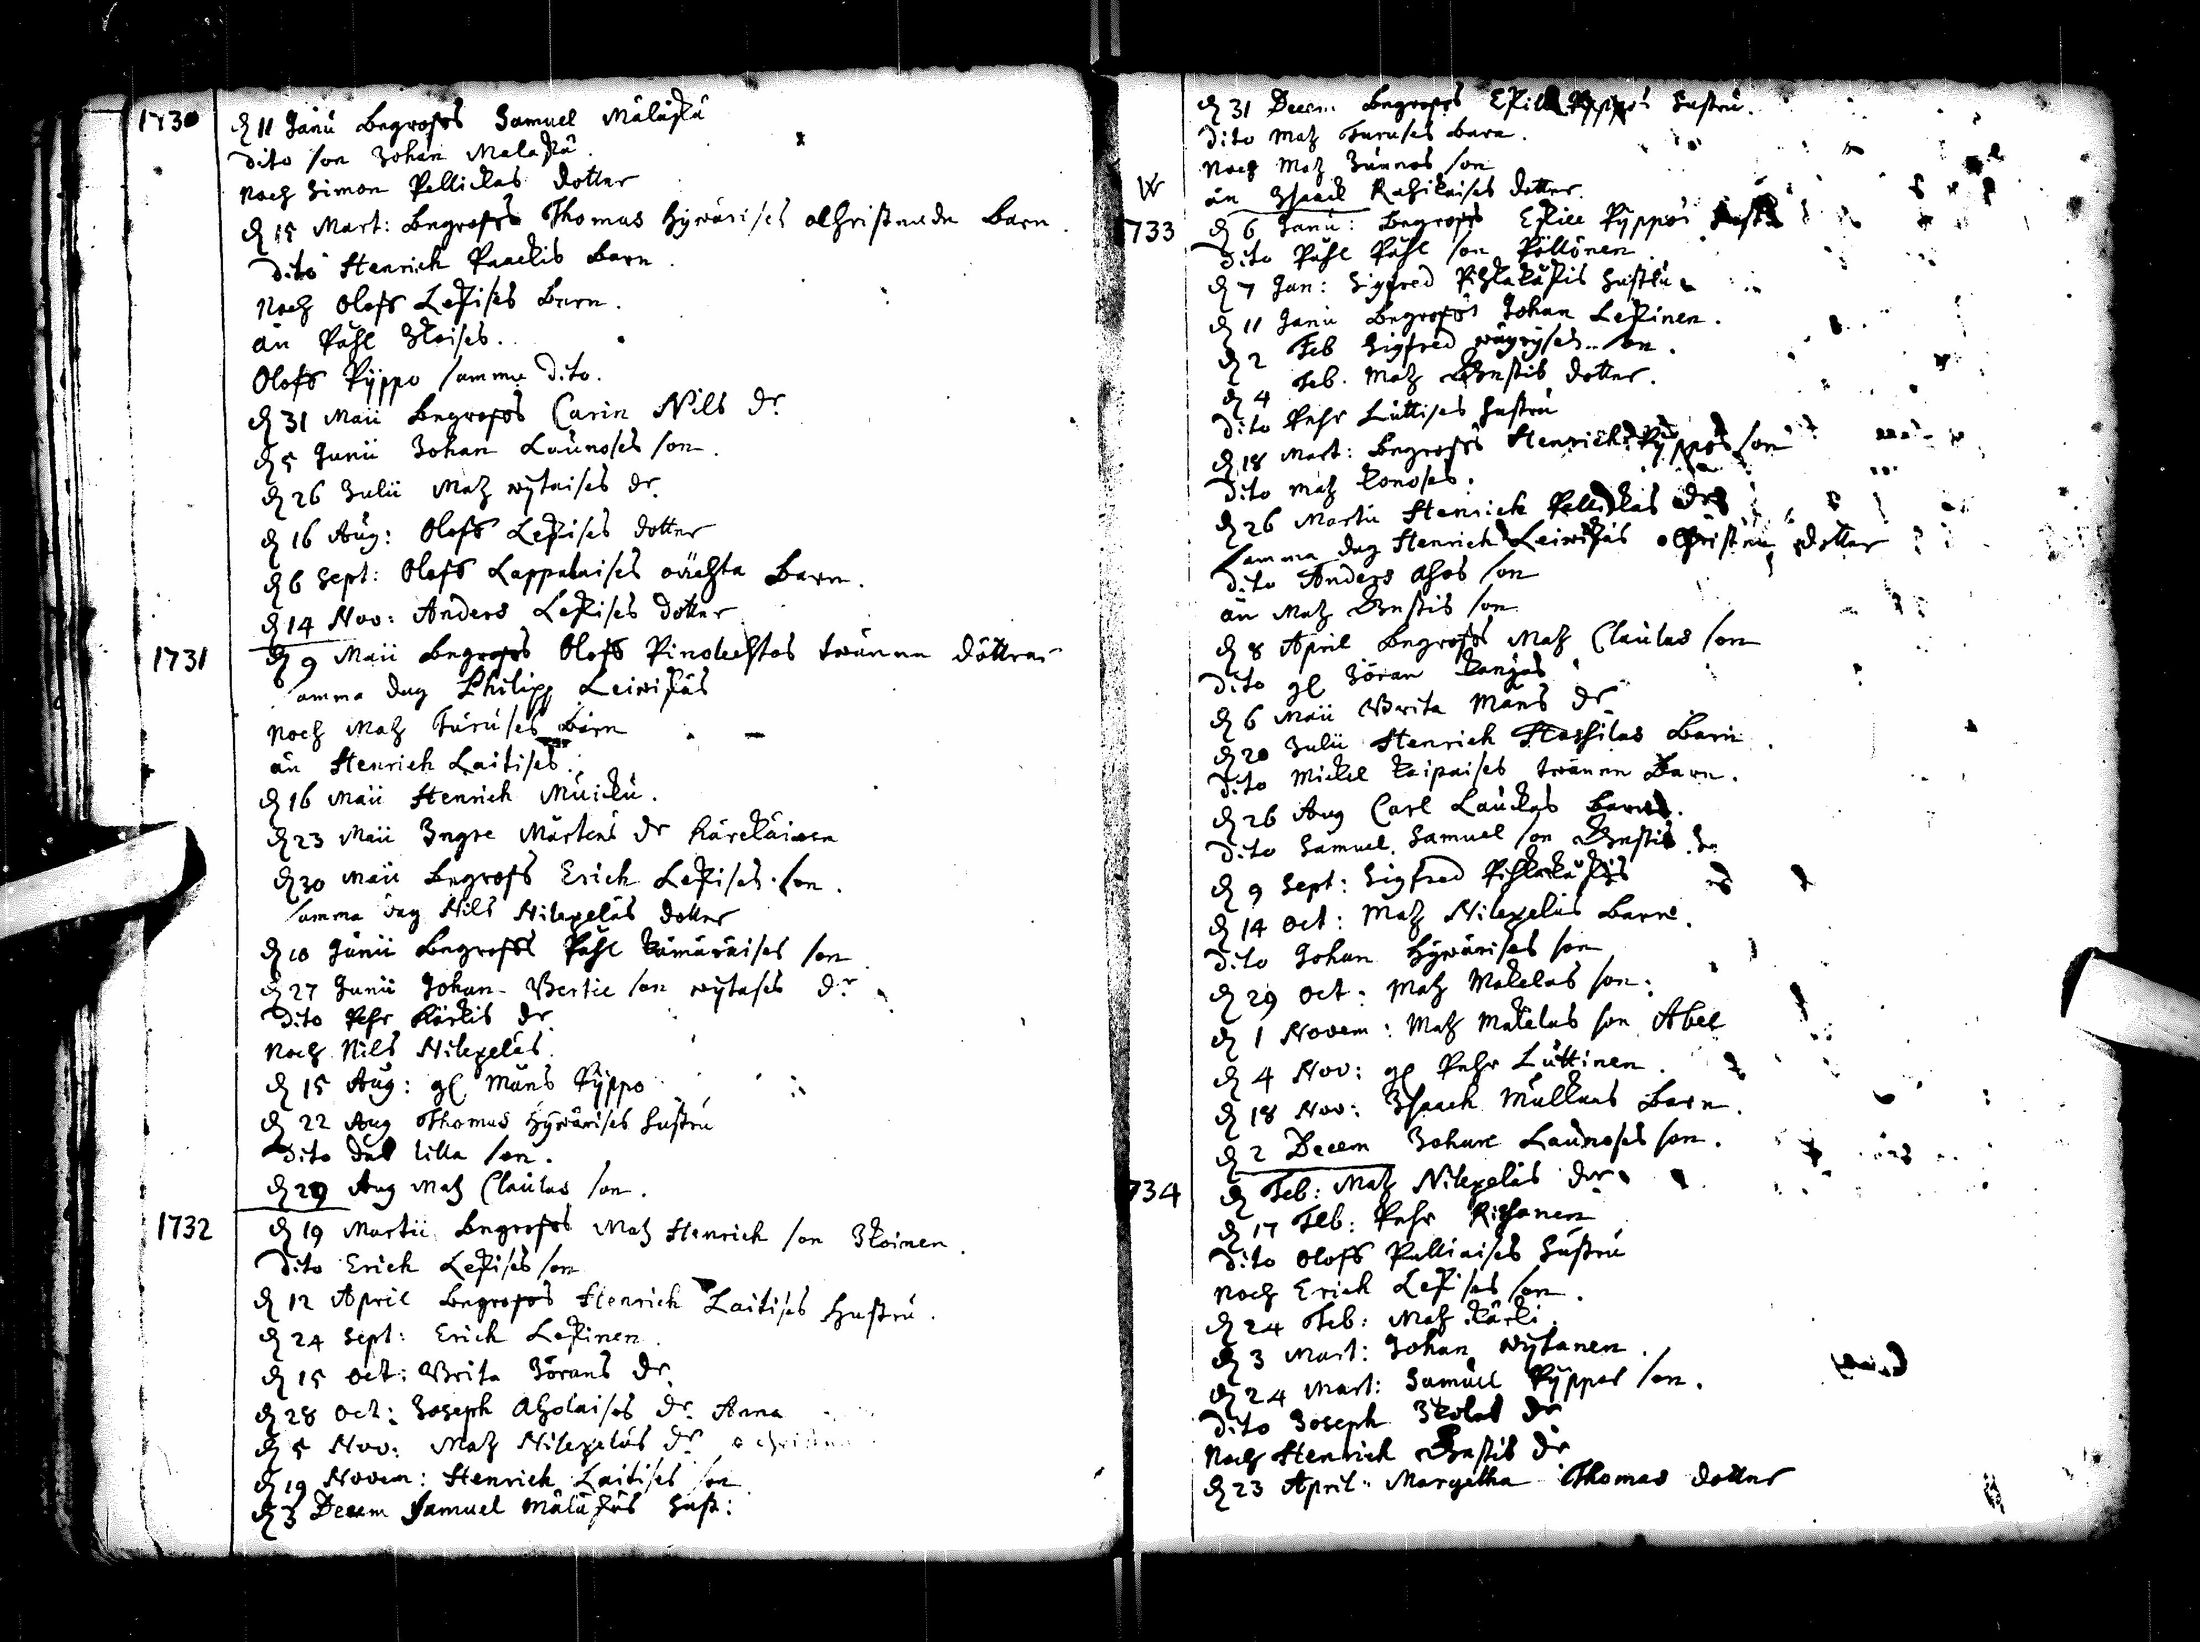 1730
d 11 Janu Begrofs Samuel Mäläskä
dito son Johan Malaskä.
Noch Simon Pellickas dotter
d 15 Mart: Begrofs Thomas Hywärises ochristnade Barn.
dito Henrich Paackis Barn.
Noch Olofs Leskises Barn.
än Påhl Ikoises.
Olofs Pyppo samma dito.
d 31 Maii Begrofs Carin Nils dr
d 5 Junii Johan Launoses son.
d 26 Julii Matz wytaises dr.
d 16 Aug: Olofs Leskises dotter
d 6 Sept: Olofs Lappalaises oächta Barn.
d 14 Nov: Anders Leskises dotter
1731
d 9 Maii Begrofs Olofs twänne döttrar
samma dag Philipp Leiwiskäs
Noch Matz Turuses Barn
än Henrich Laitises.
d 16 Maii Henrich Muicku.
d 23 Maii Ingre Mårtens dr Kärckäinen
d 30 Maii Begrofs Erich Leskises son.
samma dag Nils Nilexeläs dotter
d 10 Junii Begrofs Påhl Kämäräises son.
d 27 Junii Johan Bertil son wytases dr
dito Pehr Kärkis dr.
Noch Nils Nilexeläs.
d 15 Aug: gl Måns Pyppo
d 22 Aug Thomas Hywärises hustru
dito des lilla son.
d 29 Aug Matz Claulas son.
1732
d 19 Martii Begrofs Matz Henrich son Ikoinen.
dito Erich Leskises son
d 12 April Begrofs Henrich Laitises hustru.
d 24 Sept: Erich Leskinen.
d 15 Oct: Brita Jörans dr.
d 28 Oct: Joseph Aholaises dr. Anna
d 5 Nov: Matz Nilexeläs dr
d 19 Novem: Henrich Laitises son
d 3 Decem Samuel Mäläskäs hust:
d 31 Decem Begrofs Eskill Pyppos hustru.
dito Matz Turuses Barn.
Noch Matz Junnos son
än Isaack Rahikaises dotter.
1733
d 6 Janu: Begrofs Eskill Pyppos
dito Påhl Påhl son Pöllönen
d 7 Jan: Sigfred Pihlakäskis hustru
d 11 Janu Begrofs Johan Leskinen.
d 2 Feb Sigfred wäyryses son.
d 4 Feb. Matz dotter.
dito Pehr Luttises hustru
d 18 Mart: Begrofs Henrich Pyppos son
dito Matz Konoses.
d 26 Martii Henrich Pellickas dr
samma dag Henrich Leiwiskäs ochristna dotter
dito Anders Ahos son
än Matz son
d 8 April Begrofs Matz Claulas son
dito gl Jöran Kangas
d 6 Maii Brita Måns dr
d 20 Julii Henrich Hassilas Barn.
dito Mickel Keipaises twänne Barn.
d 26 Aug Carl Lauckas Barn.
dito Samuel Samuel son
d 9 Sept: Sigfred Pihlakäskis
d 14 Oct: Matz Nilexeläs Barn.
dito Johan Hywärises son
d 29 Oct: Matz Mäkeläs son:
d 1 Novem: Matz Mäkeläs son Abel
d 4 Nov: gl Pehr Luttinen.
d 18 Nov: Isaach Mulkuas Barn.
d 2 Decem Johan Launoses son.
1734
d Feb: Matz Nilexeläs dr
d 17 Feb: Pehr
dito Olofs Palliaises hustru
Noch Erich Leskises son.
d 24 Feb: Matz Kärki.
d 3 Mart: Johan wytanen.
d 24 Mart: Samuel Pyppos son.
dito Joseph dr
Noch Henrich dr
d 23 April Margetha Thomas dotter